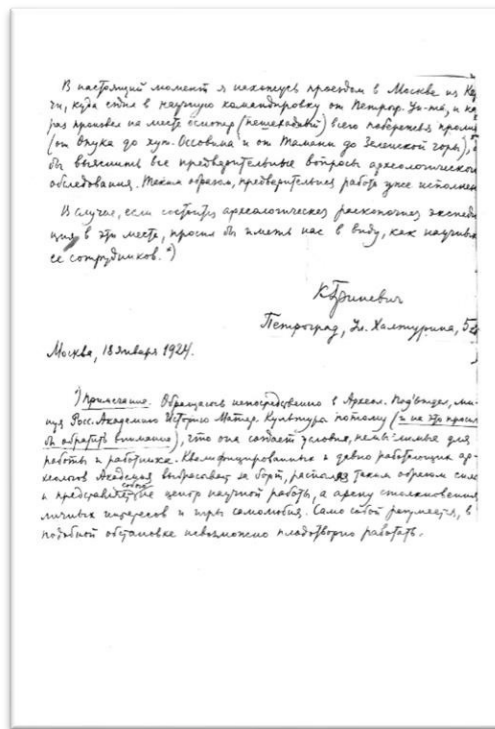 В настоящий момент я нахожусь проездом в Москве из Кер
чи, куда ездил в научную командировку от Петрогр. Ун-та, и как
раз произвел на месте осмотр (пешеходный) всего побережья пролива
(от Опука до хут. Оссовина и от Тамани до Зеленской горы),
бы выяснить все предварительные вопросы археологического
обследования. Таким образом, предварительная работа уже исполнена
В случае, если состоится археологическая раскопочная экспеди
ция в эти места, просил бы иметь нас в виду, как научных
ее сотрудников.*)
К Гриневич
Петроград, Ул. Халтурина, 5
Москва, 18 января 1924.
*) Примечание. Обращаюсь непосредственно в Археол. Подъотдел, ми-
нуя Росс. Академию Истории Матер. Культуры потому (и на это просил
бы обратить внимание), что она создает условия, немыслимые для
работы и работника. Квалифицированных и давно работающих ар-
хеологов Академия выбрасывает за борт, распыляя таким образом силы
и представляет собою не центр научной работы, а арену столкновения
личных интересов и игры самолюбия. Само собой разумеется, в
подобной обстановке невозможно плодотворно работать.